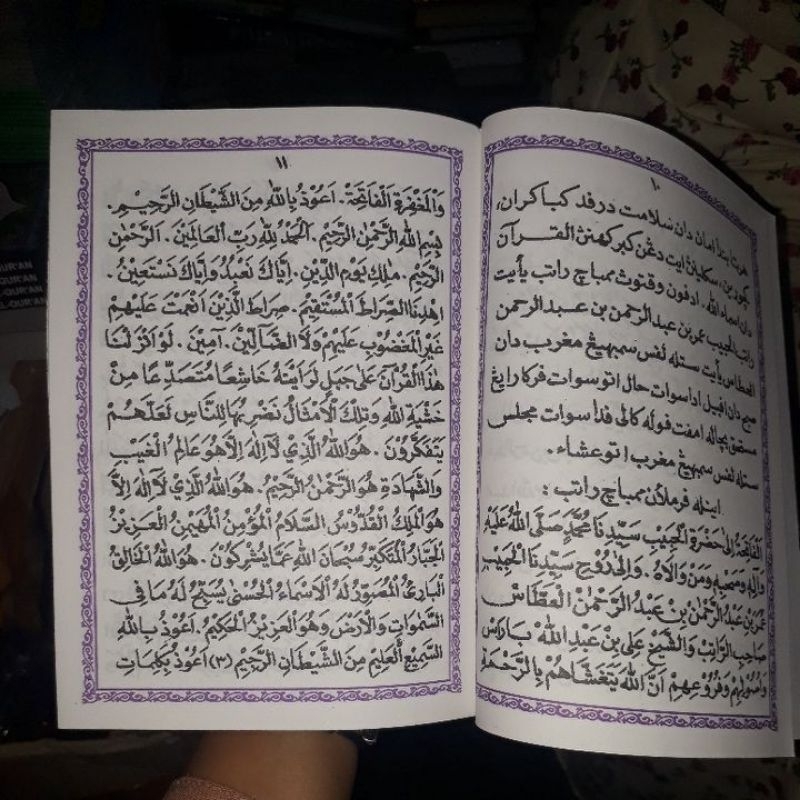 ١٠
هرتا بندا امان دان سلامت درفد كباكران،
كچورين، سكلين ايت دڠن كبركهنڽ القرآن
دان اسماء الله. ادفون وقتوڽ ممباچ راتب يأيت
راتب الحبيب عمر بن عبد الرحمن بن عبد الرحمن
العطاس يأيت ستله لفس سمبهيڠ مغرب دان
صبح دان افبيل اد اسوات حال اتو سوات فركارا يڠ
بچاله امفت فوله كالى فدا سوات مجلس
ستله لفس سمبهيڠ مغرب اتو عشاء.
اينله فرملائن ممباچ راتب :
اَلْفَاتِحَةُ اِلٰى حَضْرَةِ الْحَبِيْبِ سَيِّدِنَا مُحَمَّدٍ صَلَّى اللهُ عَلَيْهِ
وَاٰلِهِ وَصَحْبِهِ وَمَنْ وَالَاهُ. وَاِلٰى رُوْحِ سَيِّدِنَا الْحَبِيْبِ
عُمَرَ بْنِ عَبْدِ الرَّحْمٰنِ بْنِ عَبْدِ الرَّحْمٰنِ الْعَطَّاسِ
صَاحِبِ الرَّاتِبِ وَالشَّيْخِ عَلِى بْنِ عَبْدِ اللهِ بَارَاسْ
وَاُصُوْلِهِمْ وَفُرُوْعِهِمْ اَنَّ اللهَ يَتَغَشَّاهُمْ بِالرَّحْمَةِ
١١
وَالْمَغْفِرَةِ الْفَاتِحَةْ. اَعُوْذُ بِاللهِ مِنَ الشَّيْطَانِ الرَّجِيْمِ.
بِسْمِ اللهِ الرَّحْمٰنِ الرَّحِيْمِ. اَلْحَمْدُ لِلّٰهِ رَبِّ الْعَالَمِيْنَ. اَلرَّحْمٰنِ
الرَّحِيْمِ. مٰلِكِ يَوْمِ الدِّيْنِ. اِيَّاكَ نَعْبُدُ وَاِيَّاكَ نَسْتَعِيْنُ.
اِهْدِنَا الصِّرَاطَ الْمُسْتَقِيْمَ. صِرَاطَ الَّذِيْنَ اَنْعَمْتَ عَلَيْهِمْ
غَيْرِ الْمَغْضُوْبِ عَلَيْهِمْ وَلَا الضَّآلِّيْنَ. آمِيْنَ. لَوْ اَنْزَلْنَا
هٰذَا الْقُرْآنَ عَلٰى جَبَلٍ لَرَاَيْتَهُ خَاشِعًا مُتَصَدِّعًا مِنْ
خَشْيَةِ اللهِ وَتِلْكَ الْاَمْثَالُ نَضْرِبُهَا لِلنَّاسِ لَعَلَّهُمْ
يَتَفَكَّرُوْنَ. هُوَ اللهُ الَّذِيْ لَآ اِلٰهَ اِلَّا هُوَ عَالِمُ الْغَيْبِ
وَالشَّهَادَةِ هُوَ الرَّحْمٰنُ الرَّحِيْمُ. هُوَ اللهُ الَّذِيْ لَآ اِلٰهَ اِلَّا
هُوَ الْمَلِكُ الْقُدُّوْسُ السَّلَامُ الْمُؤْمِنُ الْمُهَيْمِنُ الْعَزِيْزُ
الْجَبَّارُ الْمُتَكَبِّرُ سُبْحَانَ اللهِ عَمَّا يُشْرِكُوْنَ. هُوَ اللهُ الْخَالِقُ
الْبَارِئُ الْمُصَوِّرُ لَهُ الْاَسْمَاءُ الْحُسْنٰى يُسَبِّحُ لَهُ مَا فِى
السَّمٰوَاتِ وَالْاَرْضِ وَهُوَ الْعَزِيْزُ الْحَكِيْمُ. اَعُوْذُ بِاللهِ
السَّمِيْعِ الْعَلِيْمِ مِنَ الشَّيْطَانِ الرَّجِيْمِ (٣) اَعُوْذُ بِكَلِمَاتِ
QUR'AN
QUR'AN
L-QUR'AN